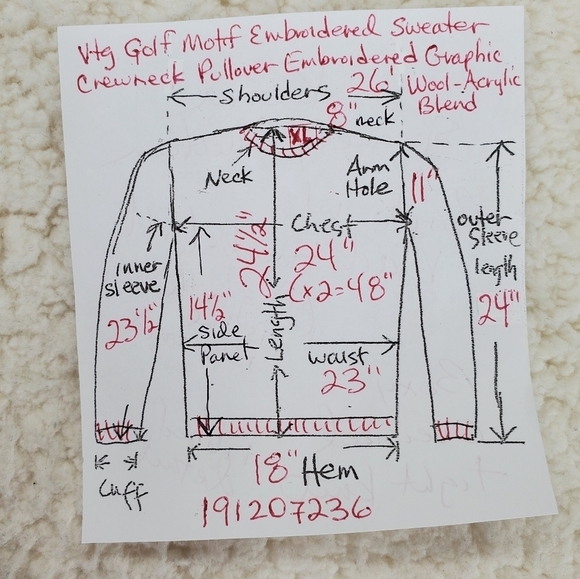 Vtg Golf Motif Embroidered Sweater
Crewneck Pullover Embroidered Graphic
Wool-Acrylic
Blend
Shoulders 26"
8" neck
XL
Neck
Arm
Hole
11"
Chest
24"
(x2=48"
24½"
Length
outer
Sleeve
length
24"
inner
sleeve
23½"
14½"
side
Panel
waist
23"
Cuff
18" Hem
191207236